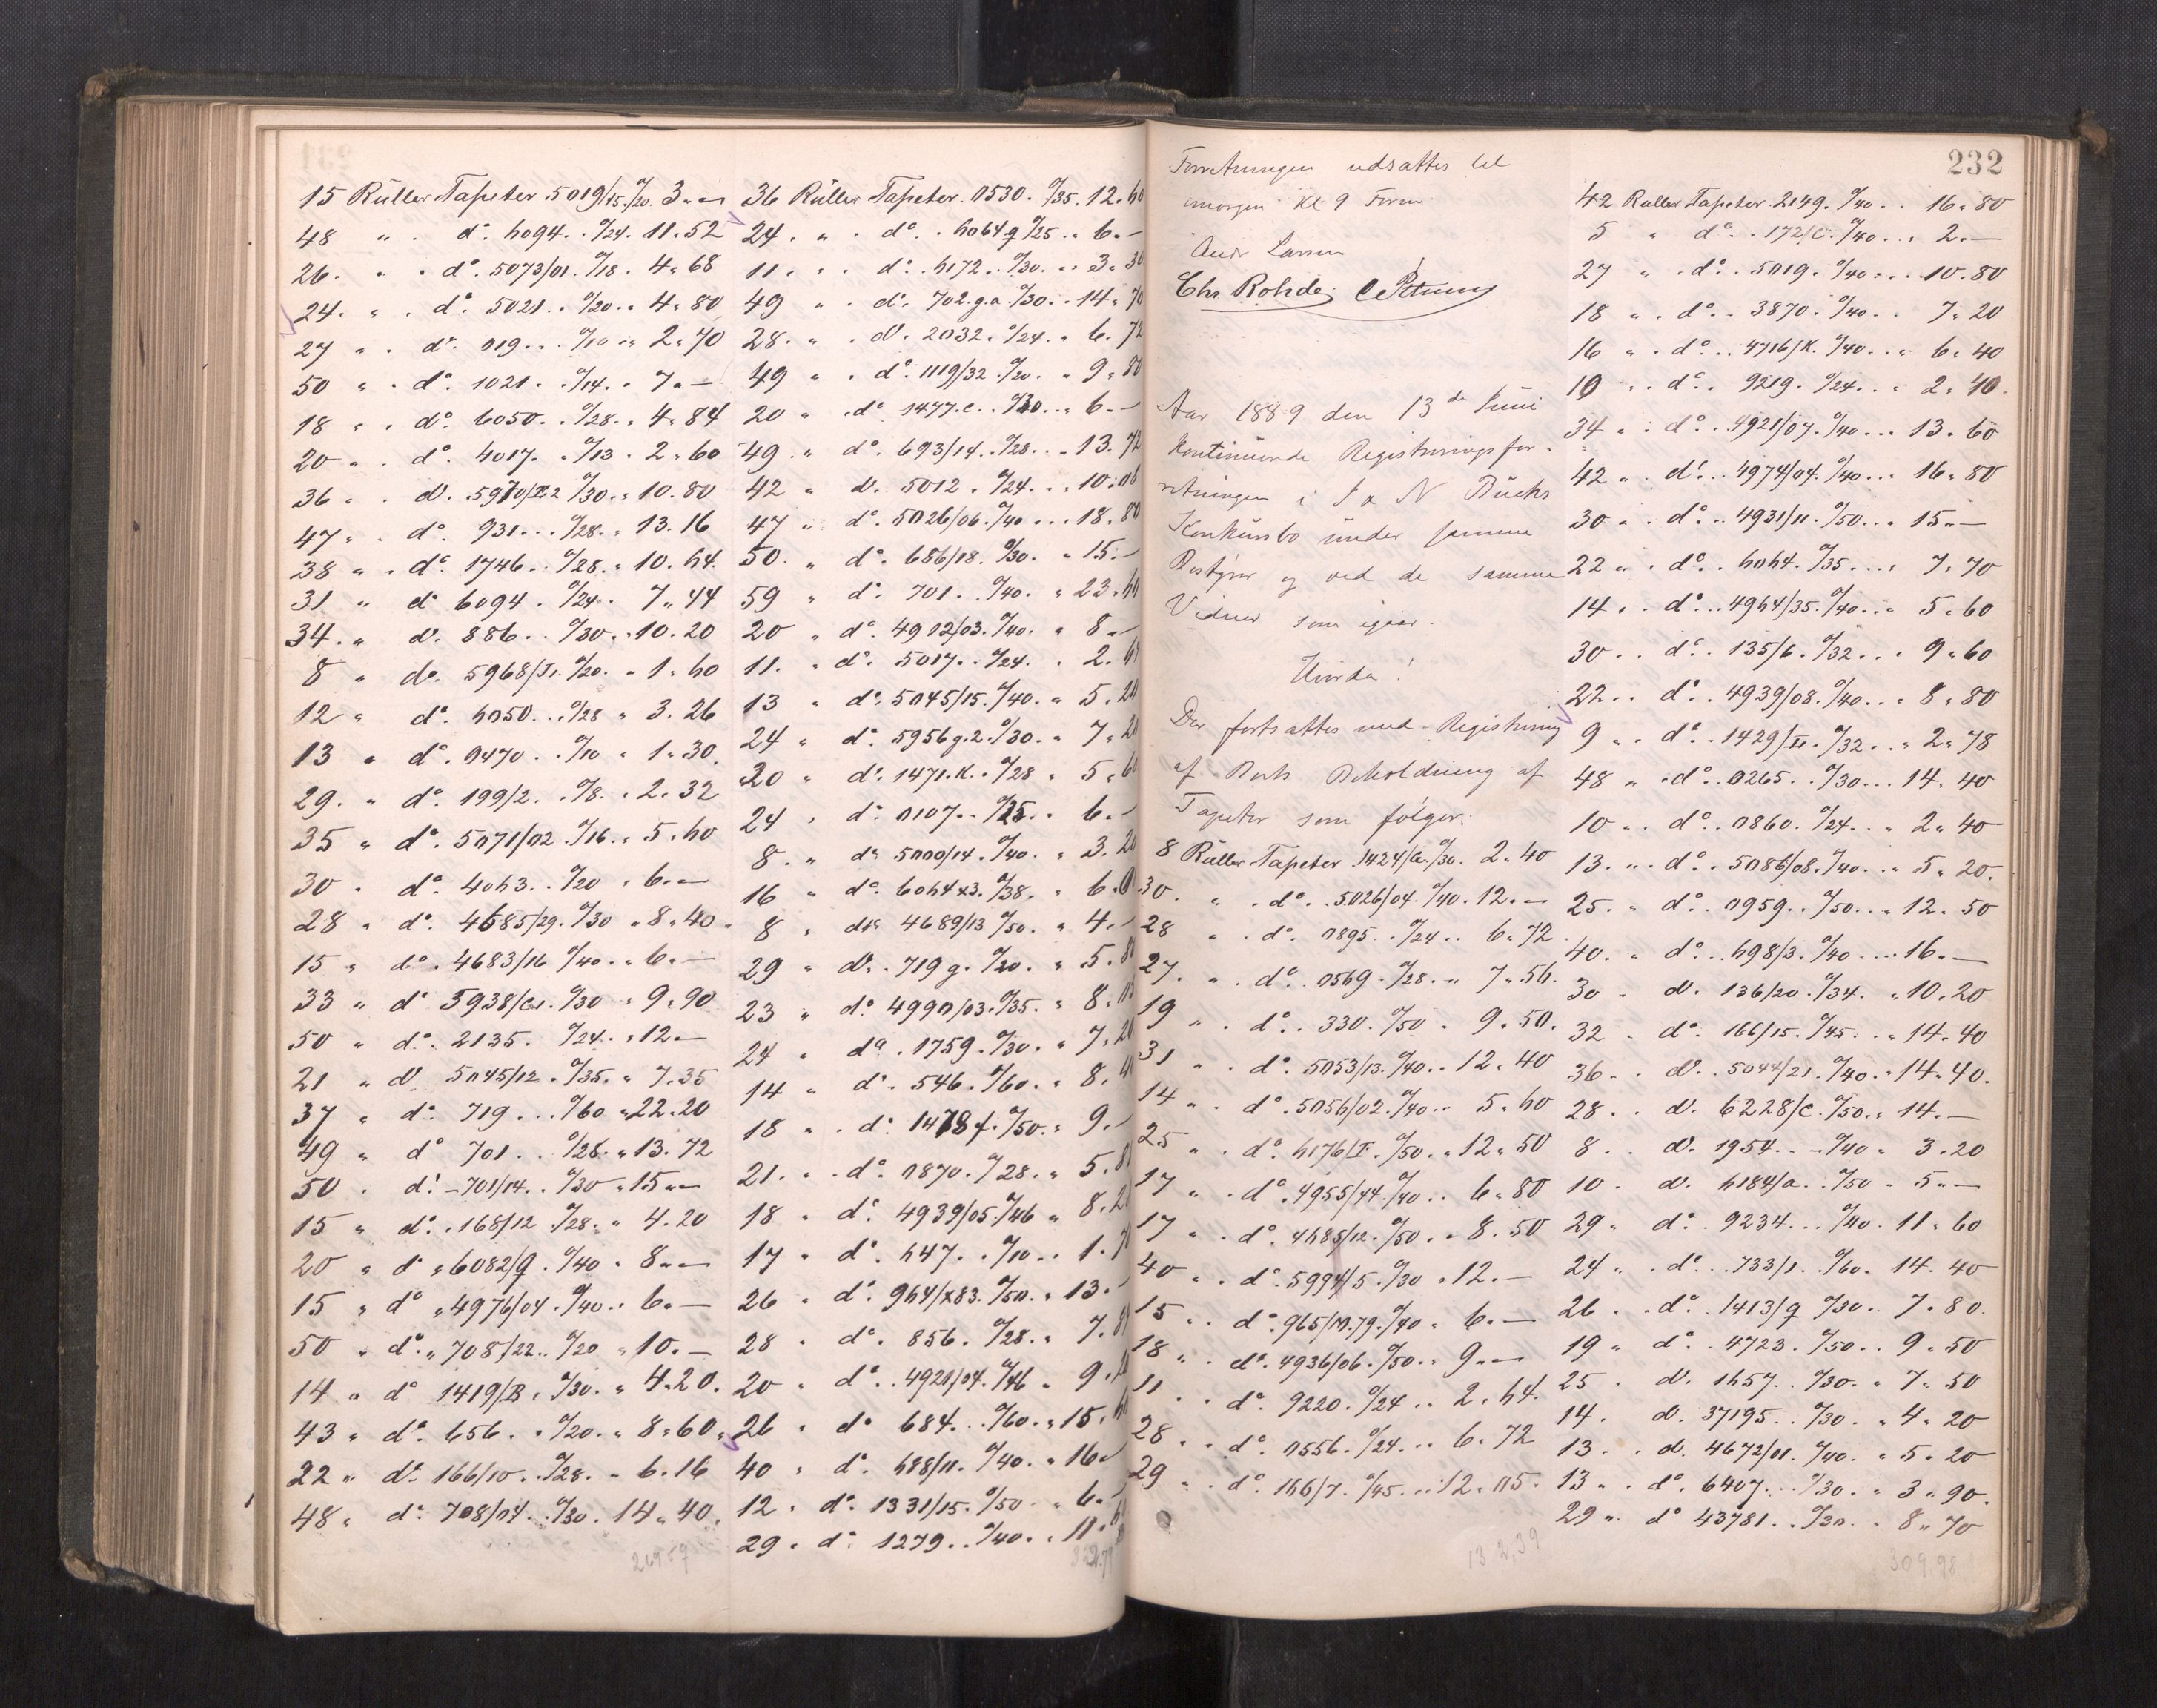 15 Rüller Tapeter 5019/15. %20. 3 „ —
48 „ . do. 6094. . %24. 11. 52
26. „ . do. 5073/01. %18. 4 „ 68
24. „ . do. 5021. . %20. „ 4 „ 80
27 „ . do. 019. . %10 „ 2 „ 70
50 „ . do. 1021. . %14. „ 7 „ —
18 „ . do. 6050. . %28. „ 4 „ 84
20 „ . do. 4017. . %13 „ 2 „ 60
36 „ . do. 5970/ %30. „ 10. 80
47 „ . do. 931. . . %28. „ 13. 16
38 „ . do. 1746. . %28. „ 10. 64.
31 „ do 6094. %24. 7 „ 44
34. „ do. 886. . %30. „ 10. 20
8 „ do. 5968/ %20. „ 1 „ 60
12 „ do. 6050. . . %28 „ 3. 26
13 „ do. 0470. . %10 „ 1 „ 30.
29. „ do. 199/2. . %8. „ 2. 32
35 „ do. 5071/02. %16. „ 5 „ 60
30 „ do. 4063. . %20 „ 6. —
28 „ do. 4685/29. %30 „ 8 „ 40
15 „ do. 4683/16 %40. „ 6 „ —
33 „ do 5938/ %30 „ 9 „ 90
50 „ do. 2135. %24. „ 12 —
21 „ do. 5045/12. %35. „ 7. 35
37 „ do. 719. . . %60 „ 22. 20
49 „ do 701. . %28. „ 13. 72
50 „ do. 701/14. . %30 „ 15 „ —
15 „ do. 168/12 %28. „ 4. 20
20 „ do „ 6082/g. %40 „ 8 „ —
15 „ do „ 4976/04. %40. „ 6. —
50 „ do. „ 708/22. . %20 „ 10. —
14 „ do 1419/B. %30. „ 4. 20.
43 „ do. 656. . %20. „ 8 „ 60
22 „ do. 166/10. . %28. „ 6. 16
48 „ do. 708/04. . %30. 14 „ 40.
36 Rüller Tapeter. 0530. %35. 12. 60
24. „ . do. . 6064 g %25. „ 6. —
11. „ . do. . 6172. . %30. „ 3. 30
49 „ . do. 702. g.a. %30. . 14 „ 70
28. „ . do. 2032. %24. „ 6. 72
49 „ . do. 1119/32. %20. „ 9. 80
20 „ . do. 1477. c. . %30. „ 6. —
49. „ do. 693/14. . %28. . „ 13. 72
42 „ do. 5012. %24. . „ 10. 08
47 „ do. 5026/06. %40. . . 18. 80
50. „ do. 686/18. %30. „ 15. —
59 „ do. 701. . %40. „ 23. 60
20 „ do. 4912/03. %40. „ 8 „ —
11. „ do. 5017. . %24. „ 2. 64
13 „ do. 5045/15. %40. „ 5. 20
24 „ do. 5956 g. 2. %30. „ 7. 20
20 „ do. 1471. K. . %28 „ 5. 60
24 „ do. 0107. . %25. „ 6. —
8. „ do. 5000/14. %40. „ 3. 20
16 „ do. 6064 x3. %38. „ 6. 0
8 „ do 4689/13 %50. „ 4. —
29 „ do. . 719 g. %20. „ 5. 80
23 „ do. 4990/03. %35. „ 8. 05
24 „ do. 1759. %30. „ 7, 20
14 „ do. 546. %60. „ 8. 40
18 „ . do. 1478 f. %50. „ 9. —
21. „ . do. 0870. %28. „ 5. 8
18 „ do. 4939/05. %46 „ 8. 2
17 „ do. 647. . %10. . 1. 70
26 „ do. 964/x83. %50. „ 13. —
28 „ do. 856. %28. „ 7. 84
20 „ do. . 4921/04. %46 „ 9. 20
26 „ do 684. . %60. „ 15. 60
40 „ do. 688/11. %40. „ 16 „
12 „ do. 1331/15. %50 „ 6. —
29 „ do. 1279. . %40. . 11. 60
269.59
232
Forretningen udsattes til
imorgen Kl. 9 Form
Andr Larsen
Chr Rohde.
Aar 1889 den 13de Juni
kontinuerede Registreringsfor-
retningen i J & N Bücks
Konkursbo under samme
Bestyrer og ved de samme
Vidner som igaar.
Hvorda!
Der fortsattes med Registrering
af Boets Beholdning af
Tapeter som følger:
8 Rüller Tapeter. 1424/ %30. 2. 40
30. „ . do. . 5026/04. %40. 12. —
28 „ . do. 0895. . %24. . 6 „ 72.
27. „ . do. . 0569. %28. „ 7 „ 56.
19 „ . do. . 330. %50. 9. 50.
31 „ . do. 5053/13. %40. . 12. 40
14 „ . do. 5056/02. %40. . 5. 60
25 „ . do. 6176/ %50. „ 12 „ 50
17 „ . do. 4955/44. %40. . 6 „ 80
17 „ . do. 4685/12. %50. „ 8. 50
40 „ . do. 5994/5. %30 „ 12. —
15 „ . do. 965/M.79. %40 „ 6. —
18 „ . do. 4936/06. %50. . 9 „ —
11 „ . do. 9220. %24 . . 2. 64.
28 „ . do. 0556. %24. . . 6. 72
29 „ . do. 166/7. %45. . . 12. 05.
132,39
42 Ruller Tapeter. 2149. %40. . . 16 „ 80
5 „ do. . 172/C. %40. . „ 2. —
27 „ . do. . 5019. %40. . . 10. 80
18 „ . do. . 3870. %40. . . 7 „ 20
16 „ . do. . 4716/K. %40. . „ 6 „ 40
10 „ . do. . 9219. %24. . „ 2 „ 40.
34 „ . do. . 4921/07. %40. . . 13. 60
42 „ . do. . 4974/04. %40. . . 16 „ 80
30 „ . do. . 4931/11. %50. . „ 15 „ —
22 „ . do. . 6064. %35. . . „ 7. 70
14 „ . do. . 4964/35. %40. . „ 5. 60
30 „ . do. . 135/6. %32. . „ 9 „ 60
22 „ . do. . 4939/08. %40. . „ 8 „ 80
9 „ . do. . 1429/ %32. . „ 2 „ 78
48 „ . do. . 0265. . %30. . . 14. 40
10 „ . do. . 0860. %24. . „ 2 „ 40
13. „ . do. . 5086/08. %40. . „ 5 „ 20.
25. „ do. . 0959. . %50. . „ 12. 50
40. „ do. . 698/3. %40. . . . 16. —
30 „ do. 136/20. %34. „ 10. 20
32 „ do. 166/15. %45. . „ 14. 40
36 „ . do. . 5044/21. %40. . 14 „ 40.
28 „ . do. 6228/C. %50. „ 14. —
8 „ . do. 1954. . %40 „ 3. 20
10 „ do. 6184/a. . %50 „ 5 „ —
29 „ do. . 9234. . . %40. 11 „ 60
24 „ . do. . . 733/1. . %60. 14. 40
26 „ . do. . 1413/g %30. . 7 „ 80.
19 „ do. . 4723. %50. . 9 „ 50
25 „ do. 1657. . %30. „ 7 „ 50
14. do. 37195. . %30. „ 4 „ 20
13. „ do. 4672/01. %40. „ 5 „ 20
13 „ . do. 6407. . . %30. „ 3 „ 90.
29 „ do 43781. . %30. „ 8 „ 70
309,98